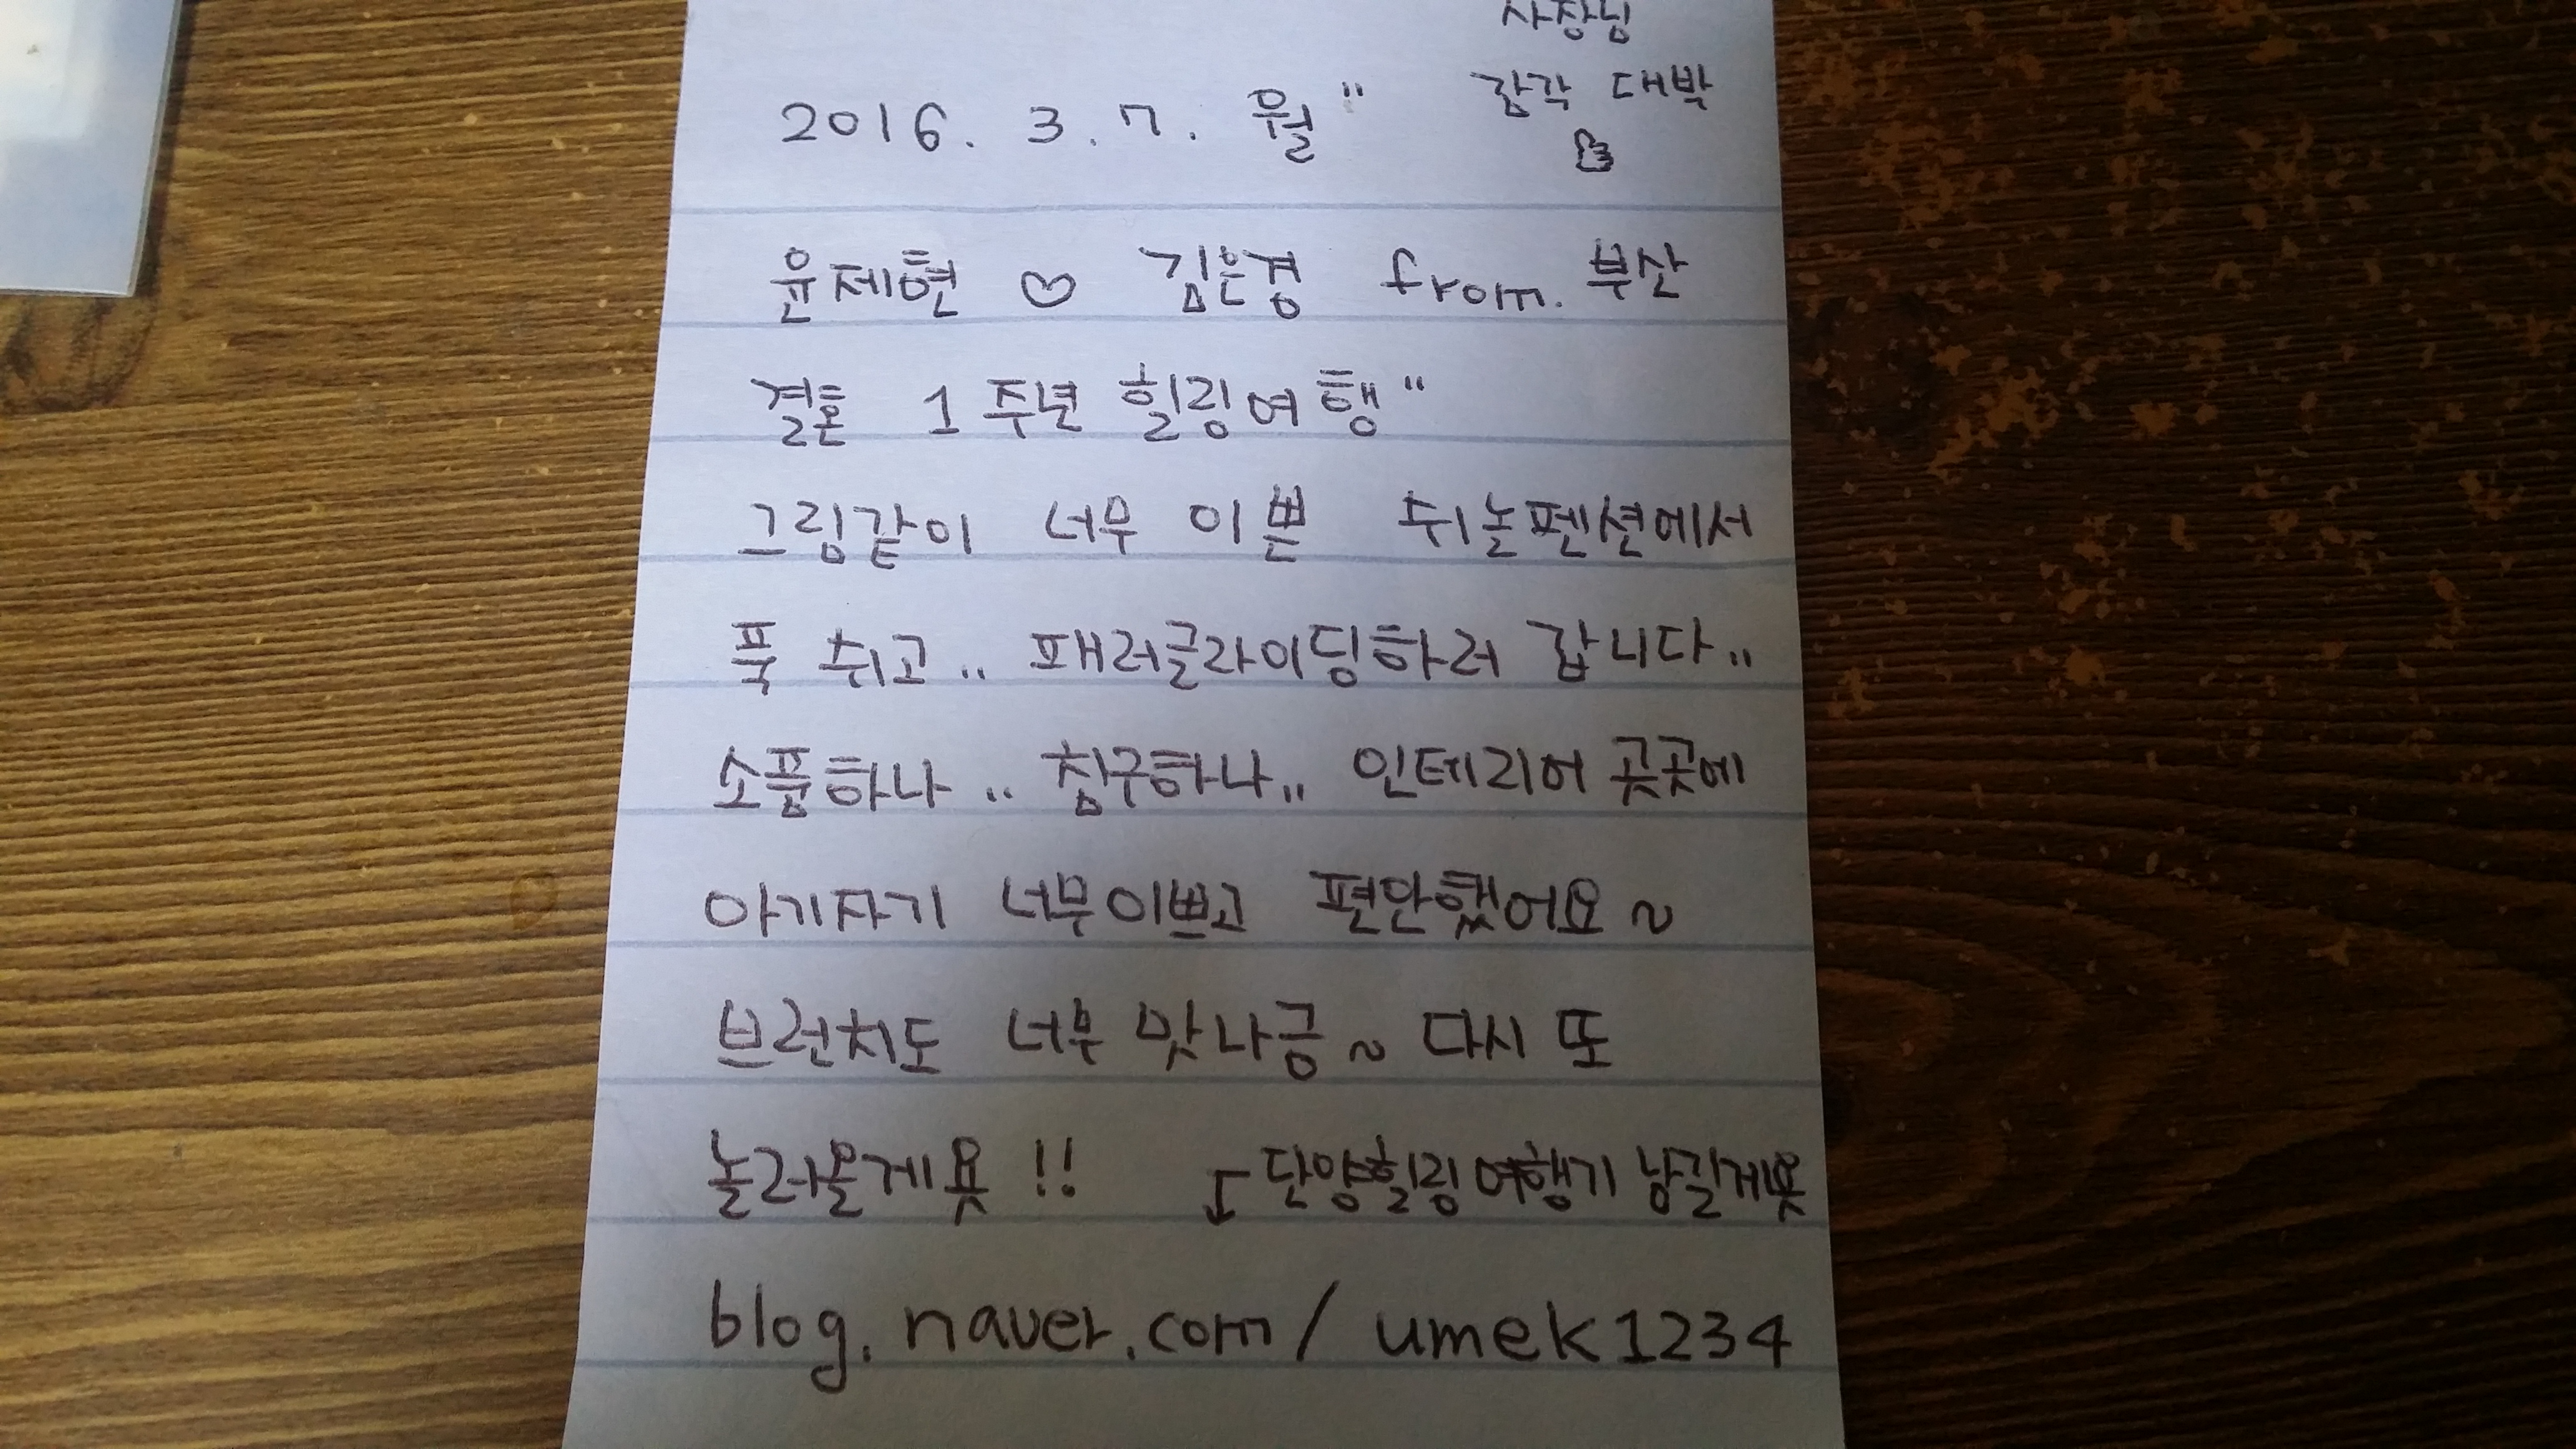 사장님
감각 대박
2016. 3. 7. 월"
윤제현 ♡ 김은경 from. 부산
결혼 1주년 힐링여행"
그림같이 너무 이쁜 쉬놀펜션에서
푹 쉬고.. 패러글라이딩하러 갑니다..
소품하나.. 침구하나.. 인테리어 곳곳에
아기자기 너무이쁘고 편안했어요~
브런치도 너무 맛나긍~ 다시 또
놀러올게욧!! ↓단양힐링여행기 남길게욧
blog.naver.com/umek1234